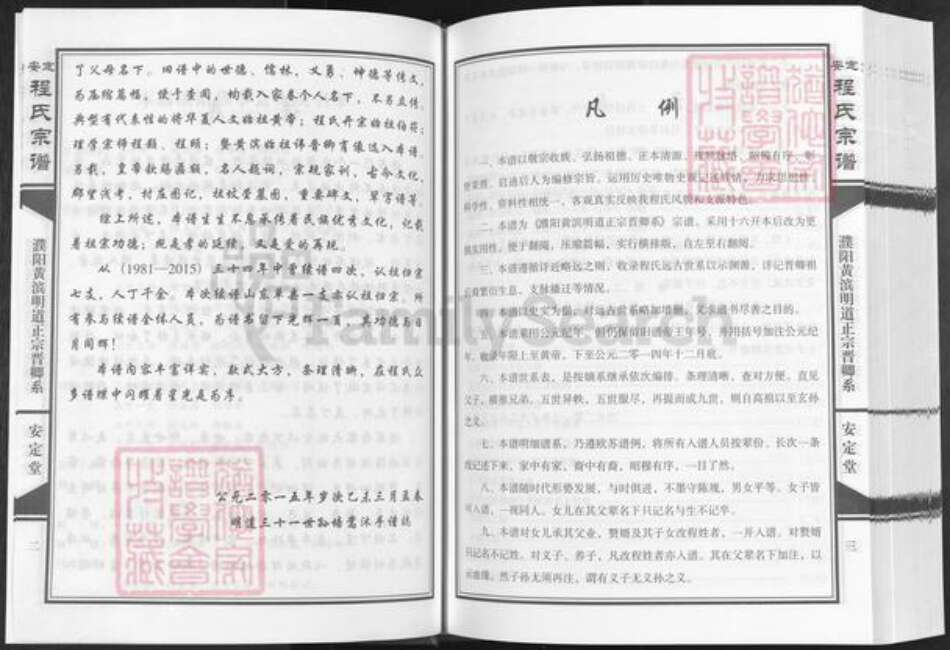 安定
程氏宗谱
濮阳黄滨明道正宗晋卿系
安定堂
二
了父母名下。旧谱中的世德、儒林、义勇、坤德等传文,
为压缩篇幅,便于查阅,均载入家卷个人名下,不另立传。
典型有代表性的将华夏人文始祖黄帝;程氏开宗始祖伯符;
理学宗师程颢、程颐;暨黄滨始祖讳晋卿肖像选入本谱。
另载,皇帝敕赐匾额,名人题词,宗规家训,古今文化,
郡望浅考,村庄图记,祖坟茔墓图,重要碑文,单字谱等。
综上所述,本谱生生不息承传着民族优秀文化,记载
着祖宗功德;既是孝的延续,又是爱的再现。
从(1981—2015)三十四年中曾续谱四次,认祖归宗
七支,人丁千余。本次续谱山东单县一支亦认祖归宗。所
有参与续谱全体人员,为谱书留下光辉一页,其功德与日
月同辉!
本谱内容丰富详实,款式大方,条理清晰,在程氏众
多谱牒中闪耀着星光是为序。
公元二零一五年岁次乙未三月孟春
明道三十一世孙培嵩沐手谨志
FamilySearch
安定
程氏宗谱
濮阳黄滨明道正宗晋卿系
安定堂
三
凡 例
一、本谱以敬宗收族、弘扬祖德、正本清源、理顺脉络、昭穆有序、彰
世荣睢、启迪后人为编修宗旨。运用历史唯物史观记述族情,力求思想性、
科学性、资料性相统一,客观真实反映我程氏风貌和支派特色。
二、本谱为《濮阳黄滨明道正宗晋卿系》宗谱。采用十六开本后改为更
实用性,便于翻阅,压缩篇幅,实行横排版,自左至右翻阅。
三、本谱遵循详近略远之则,收录程氏远古世系以示渊源,详记晋卿祖
后裔繁衍生息、支脉播迁等情况。
四、本谱以史实为据,对远古世系略加增删,以求谱书尽善之目的。
五、本谱采用公元纪年,但仍保留旧谱帝王年号,并用括号加注公元纪
年。收录年限上至黄帝,下至公元二零一四年十二月底。
六、本谱世系表,是按嫡系继承依次编排。条理清晰,查对方便。直见
父子,横推兄弟。五世异帙,五世服尽,再提而成九世,则自高祖以至玄孙
之义。
七、本谱明细谱系,乃遵欧苏谱例,将所有入谱人员按辈份、长次一条
线记述下来,家中有家,裔中有裔,昭穆有序,一目了然。
八、本谱随时代形势发展,与时俱进,不墨守陈规,男女平等。女子皆
可入谱,一视同人。女儿在其父辈名下只记名与生不记卒。
九、本谱对女儿承其父业,赘婿及其子女改程姓者,一并入谱。对赘婿
只记名不记姓。对义子、养子,凡改程姓者亦入谱。其在父辈名下加注,以
示血缘。然子孙无须再注,谓有义子无义孙之义。